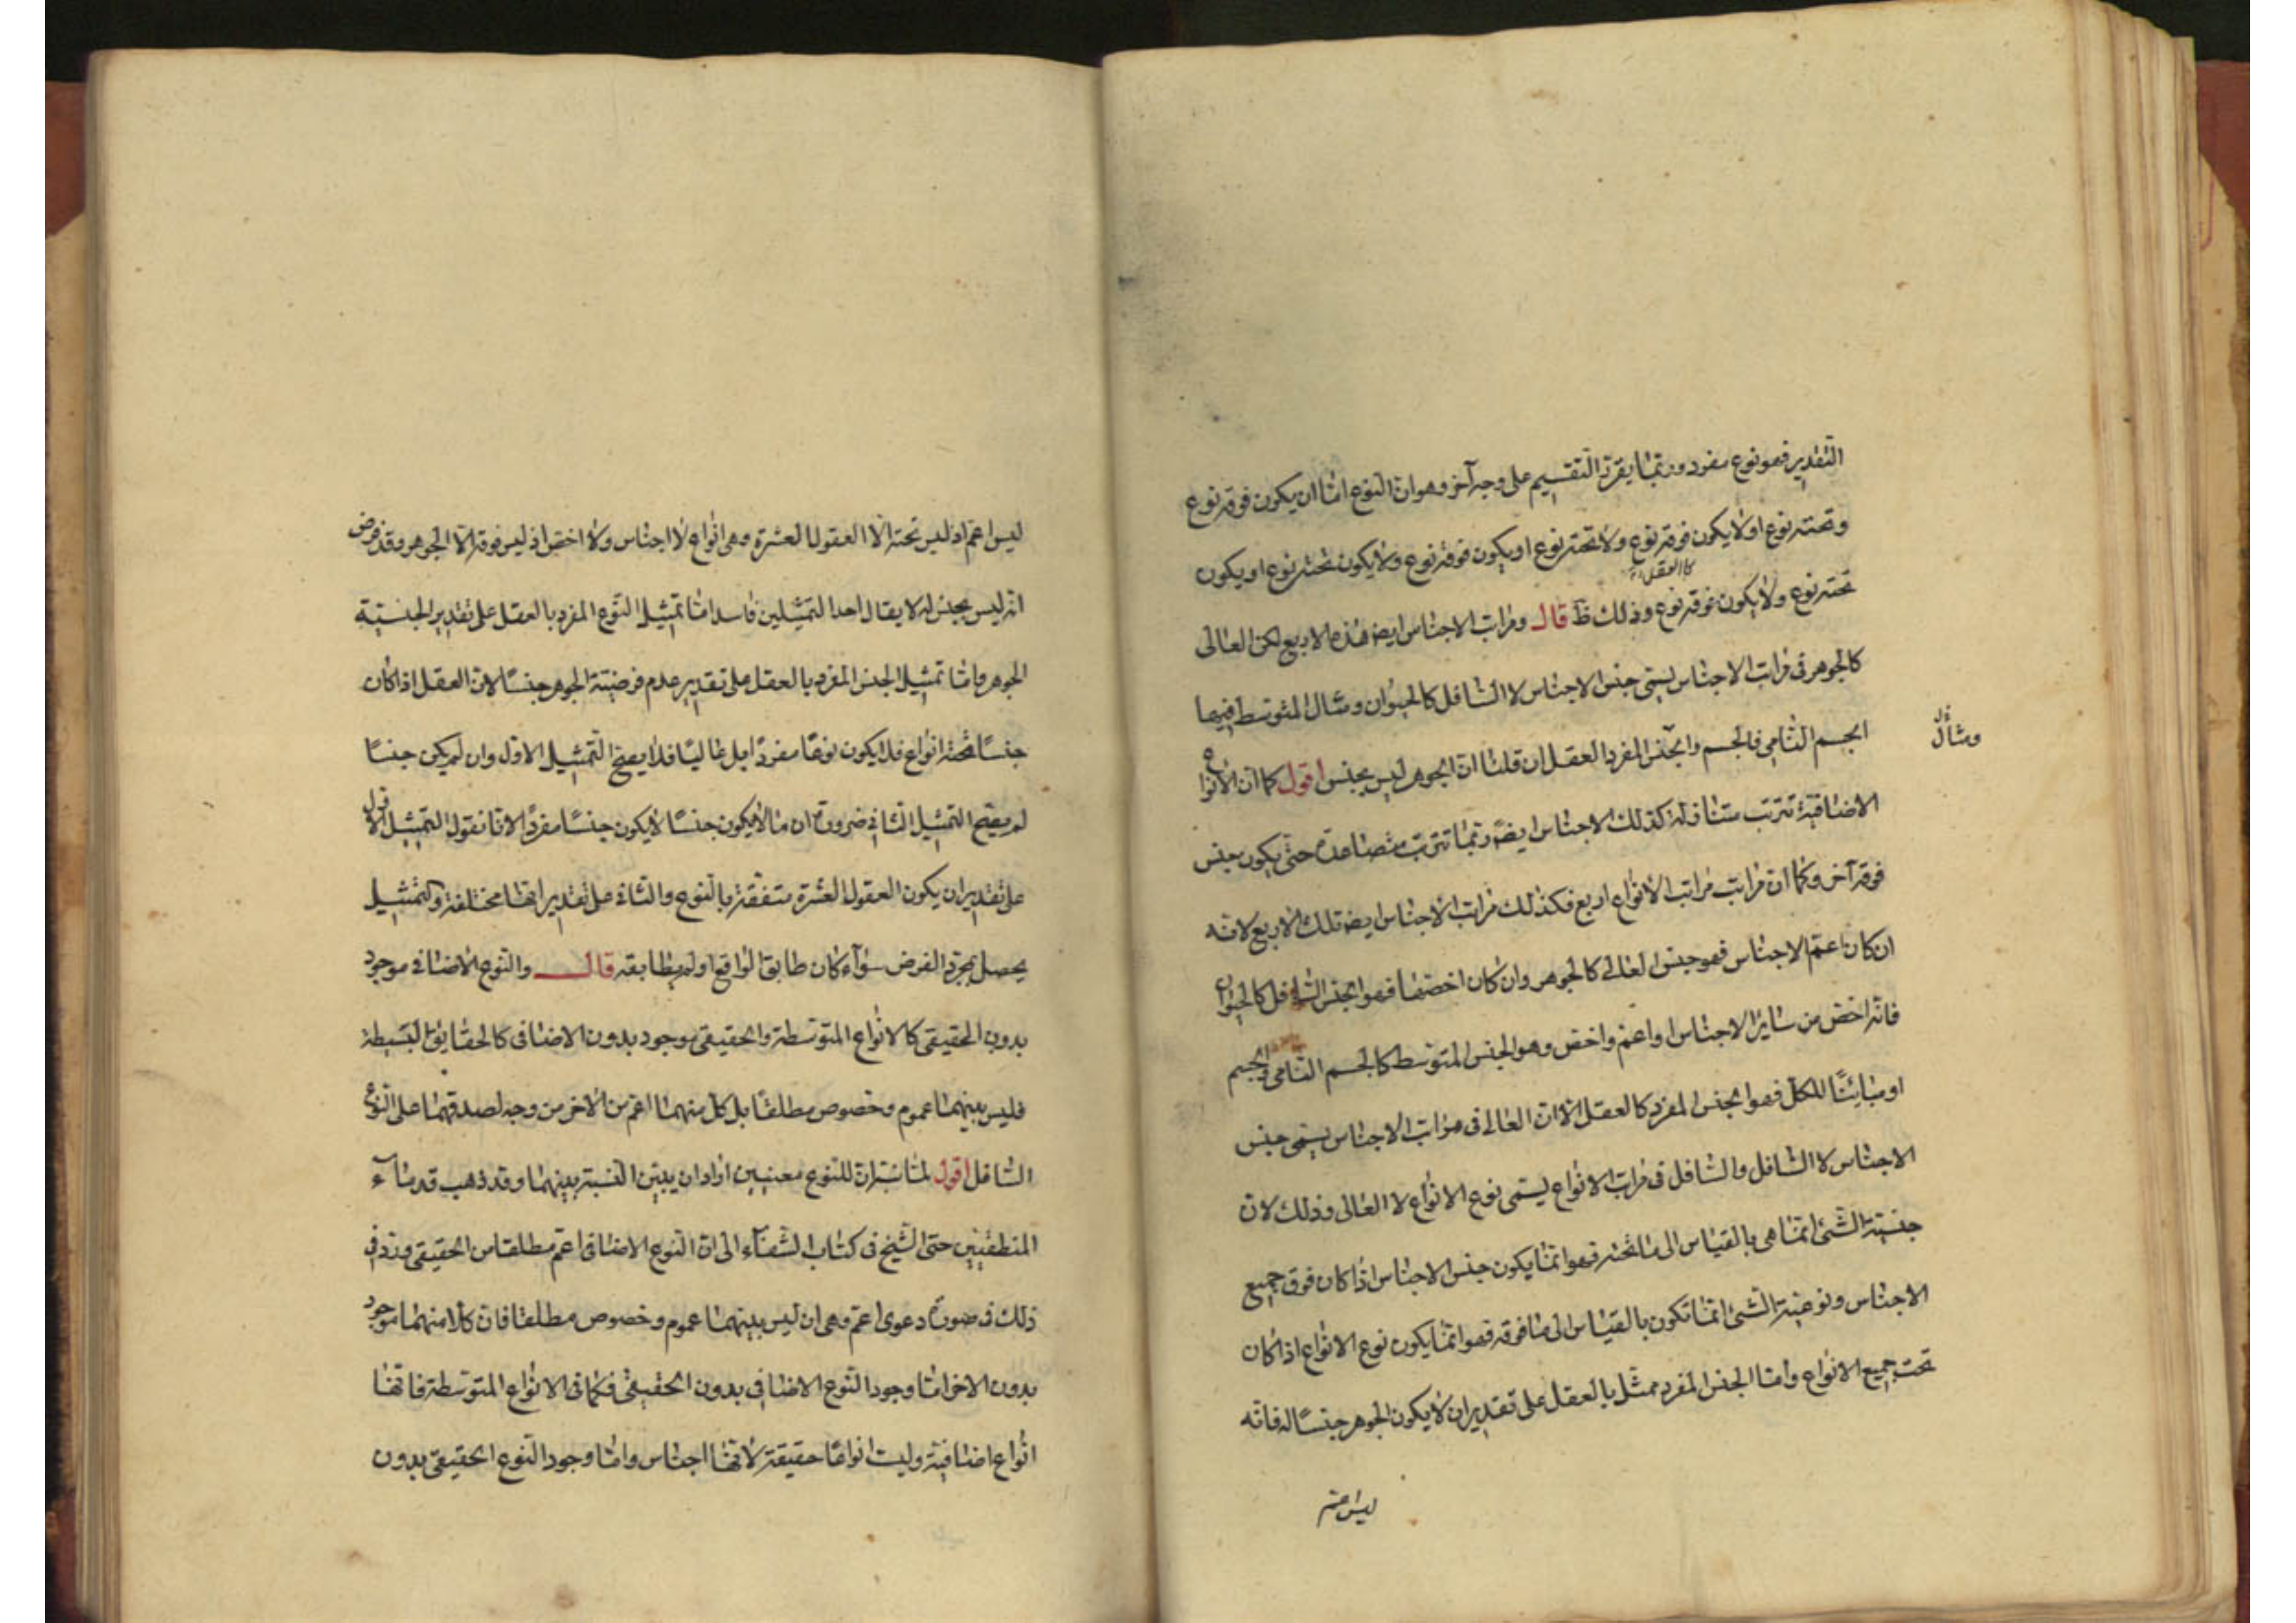 التقدير فهو نوع مفرد وربما يقرر التقسيم على وجه آخر وهو ان النوع اما ان يكون فوقه نوع
وتحته نوع او لا يكون فوقه نوع ولا تحته نوع او يكون فوقه نوع ولا يكون تحته نوع او يكون
كالعقل
تحته نوع ولا يكون فوقه نوع وذلك ظ قال ومراتب الاجناس ايضا هذه الاربع لكن العالى
كالجوهر فى مراتب الاجناس يسمى جنس الاجناس لا السافل كالحيوان ومثال المتوسط فيها
الجسم النامى فالجسم والجنس المفرد العقل ان قلنا ان الجوهر ليس بجنس اقول كما ان الانواع
ومثال
الاضافية تترتب متنازلة كذلك الاجناس ايضا ربما تترتب متصاعدة حتى يكون جنس
فوقه آخر وكما ان مراتب مراتب الانواع اربع فكذلك مراتب الاجناس ايضا تلك الاربع لانه
ان كان اعم الاجناس فهو جنس العالى كالجوهر وان كان اخصها فهو الجنس السافل كالحيوان
فانه اخص من سائر الاجناس او اعم واخص وهو الجنس المتوسط كالجسم النامى والجسم
او مباينًا للكل فهو الجنس المفرد كالعقل الا ان العالى فى مراتب الاجناس يسمى جنس
الاجناس لا السافل والسافل فى مراتب الانواع يسمى نوع الانواع لا العالى وذلك لان
جنسية الشئ انما هى بالقياس الى ما تحته فهو انما يكون جنس الاجناس اذا كان فوق جميع
الاجناس ونوعية الشئ انما تكون بالقياس الى ما فوقه فهو انما يكون نوع الانواع اذا كان
تحت جميع الانواع واما الجنس المفرد ممثل بالعقل على تقدير ان لا يكون الجوهر جنسًا له فانه
ليس اعم اذ ليس تحته الا العقول العشرة وهى انواع لا اجناس ولا اخص اذ ليس فوقه الا الجوهر وقد فرض
انه ليس بجنس له لا يقال احد التمثيلين فاسد اما تمثيل النوع المفرد بالعقل على تقدير الجنسية
الجوهر واما تمثيل الجنس المفرد بالعقل على تقدير عدم فرضية الجوهر جنسًا لان العقل اذا كان
جنسًا تحته انواع فلا يكون نوعًا مفردًا بل عاليًا فلا يصح التمثيل الاول وان لم يكن جنسًا
لم يصح التمثيل الثانى ضرورة ان ما لا يكون جنسًا لا يكون جنسًا مفردًا لانا نقول التمثيل الاول
على تقدير ان يكون العقول العشرة متفقة بالنوع والثانى على تقدير انها مختلفة والتمثيل
يحصل بمجرد الفرض سواء كان طابق الواقع او لم يطابقه قال والنوع الاضافى موجود
بدون الحقيقى كالانواع المتوسطة والحقيقى موجود بدون الاضافى كالحقايق البسيطة
فليس بينهما عموم وخصوص مطلقًا بل كل منهما اعم من الآخر من وجه لصدقهما على النوع
السافل اقول لما نبه ان للنوع معنيين اراد ان يبين النسبة بينهما وقد ذهب قدماء
المنطقيين حتى الشيخ فى كتاب الشفاء الى ان النوع الاضافى اعم مطلقا من الحقيقى ورد فى
ذلك فى صورة دعوى اعم وهى ان ليس بينهما عموم وخصوص مطلقا فان كلا منهما موجود
بدون الاخر اما وجود النوع الاضافى بدون الحقيقى فكما فى الانواع المتوسطة فانها
انواع اضافية وليست انواعًا حقيقة لانها اجناس واما وجود النوع الحقيقى بدون